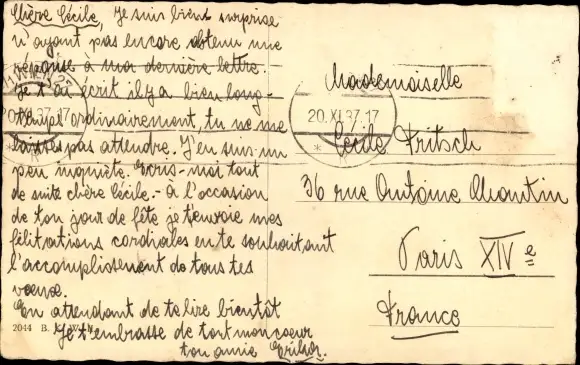 Chère Cécile, Je suis bien surprise
n'ayant pas encore obtenu une
réponse à ma dernière lettre.
Je t'ai écrit il y a bien long-
temps, ordinairement, tu ne me
laisses pas attendre. J'en suis un
peu inquiète. Ecris-moi tout
de suite chère Cécile. - à l'occasion
de ton jour de fête je t'envoie mes
félitations cordiales en te souhaitant
l'accomplissement de tous tes
vœux.
En attendant de te lire bientôt
Je t'embrasse de tout mon coeur
ton amie
2044 B.
20.XI.37.17
20.XI.37.17
Mademoiselle
Cécile Fritsch
36 rue Antoine Chantin
Paris XIVe
France